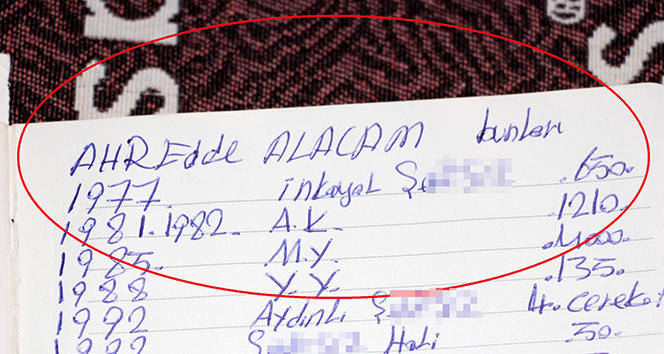 AHREdde ALACAM bunları
1977. inkayal Şe 650.
1981.1982. A.K. .1210.
1985. M.Y. .4000.
1988 Y.Y. .135.
1992 Aydınlı Ş 4. cereke
1992 Ş Hali 50.